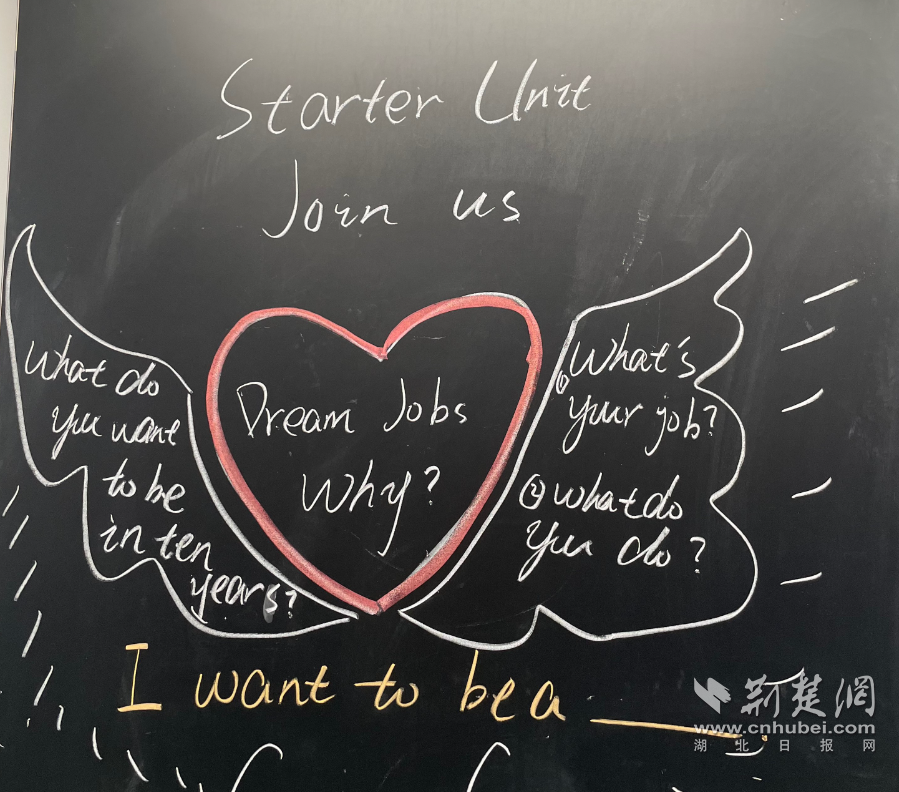 Starter Unit
Join us
What do
you want
to be
in ten
years?
Dream Jobs
Why?
① What's
your job?
② What do
you do?
I want to be a ______.
荆楚網
www.cnhubei.com
湖北日报网